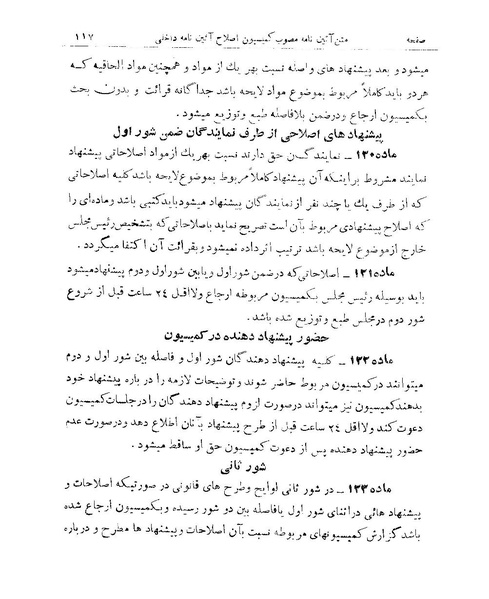 صفحه متن آئین نامه مصوب کمیسیون اصلاح آئین نامه داخلی ۱۱۷
میشود و بعد پیشنهاد های واصله نسبت بهر یك از مواد و همچنین مواد الحاقیه کـه
هر دو باید کاملاً مربوط بموضوع مواد لایحه باشد جداگانه قرائت و بدون بحث
بکمیسیون ارجاع و درضمن بلافاصله طبع و توزیع میشود .
پیشنهاد های اصلاحی از طرف نمایندگان ضمن شور اول
ماده ۱۲۰ ـ نمایندگـان حق دارند نسبت بهر یك از مواد اصلاحاتی پیشنهاد
نمایند مشروط بر اینکه آن پیشنهاد کاملاً مربوط بموضوع لایحه باشد کلیه اصلاحاتی
که از طرف یك یا چند نفر از نمایندگان پیشنهاد میشود باید کتبی باشد و ماده ای را
که اصلاح پیشنهادی مربوط بآن است تصریح نماید باصلاحاتی که بتشخیص رئیس مجلس
خارج از موضوع لایحه باشد ترتیب اثر داده نمیشود و بقرائت آن اکتفا میگردد .
ماده ۱۲۱ ـ اصلاحاتی که درضمن شور اول و یا بین شور اول و دوم پیشنهاد میشود
باید بوسیله رئیس مجلس بکمیسیون مربوطه ارجاع و لااقل ۲٤ ساعت قبل از شروع
شور دوم در مجلس طبع و توزیع شده باشد .
حضور پیشنهاد دهنده در کمیسیون
ماده ۱۲۲ ـ کلیه پیشنهاد دهندگان شور اول و فاصله بین شور اول و دوم
میتوانند در کمیسیون مربوط حاضر شوند و توضیحات لازمه را در باره پیشنهاد خود
بدهند کمیسیون نیز میتواند درصورت لزوم پیشنهاد دهندگان را در جلسات کمیسیون
دعوت کند و لااقل ۲٤ ساعت قبل از طرح پیشنهاد بآنان اطلاع دهد و درصورت عدم
حضور پیشنهاد دهنده پس از دعوت کمیسیون حق او ساقط میشود .
شور ثانی
ماده ۱۲۳ ـ در شور ثانی لوایح و طرح های قانونی در صورتیکه اصلاحات و
پیشنهاد هائی در اثنای شور اول یا فاصله بین دو شور رسیده و بکمیسیون ارجاع شده
باشد گزارش کمیسیونهای مربوطه نسبت بآن اصلاحات و پیشنهاد ها مطرح و درباره